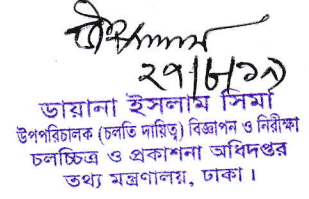 ২৭/৮/১৭
ডায়ানা ইসলাম সিমা
উপপরিচালক (চলতি দায়িত্ব) বিজ্ঞাপন ও নিরীক্ষা
চলচ্চিত্র ও প্রকাশনা অধিদপ্তর
তথ্য মন্ত্রণালয়, ঢাকা।